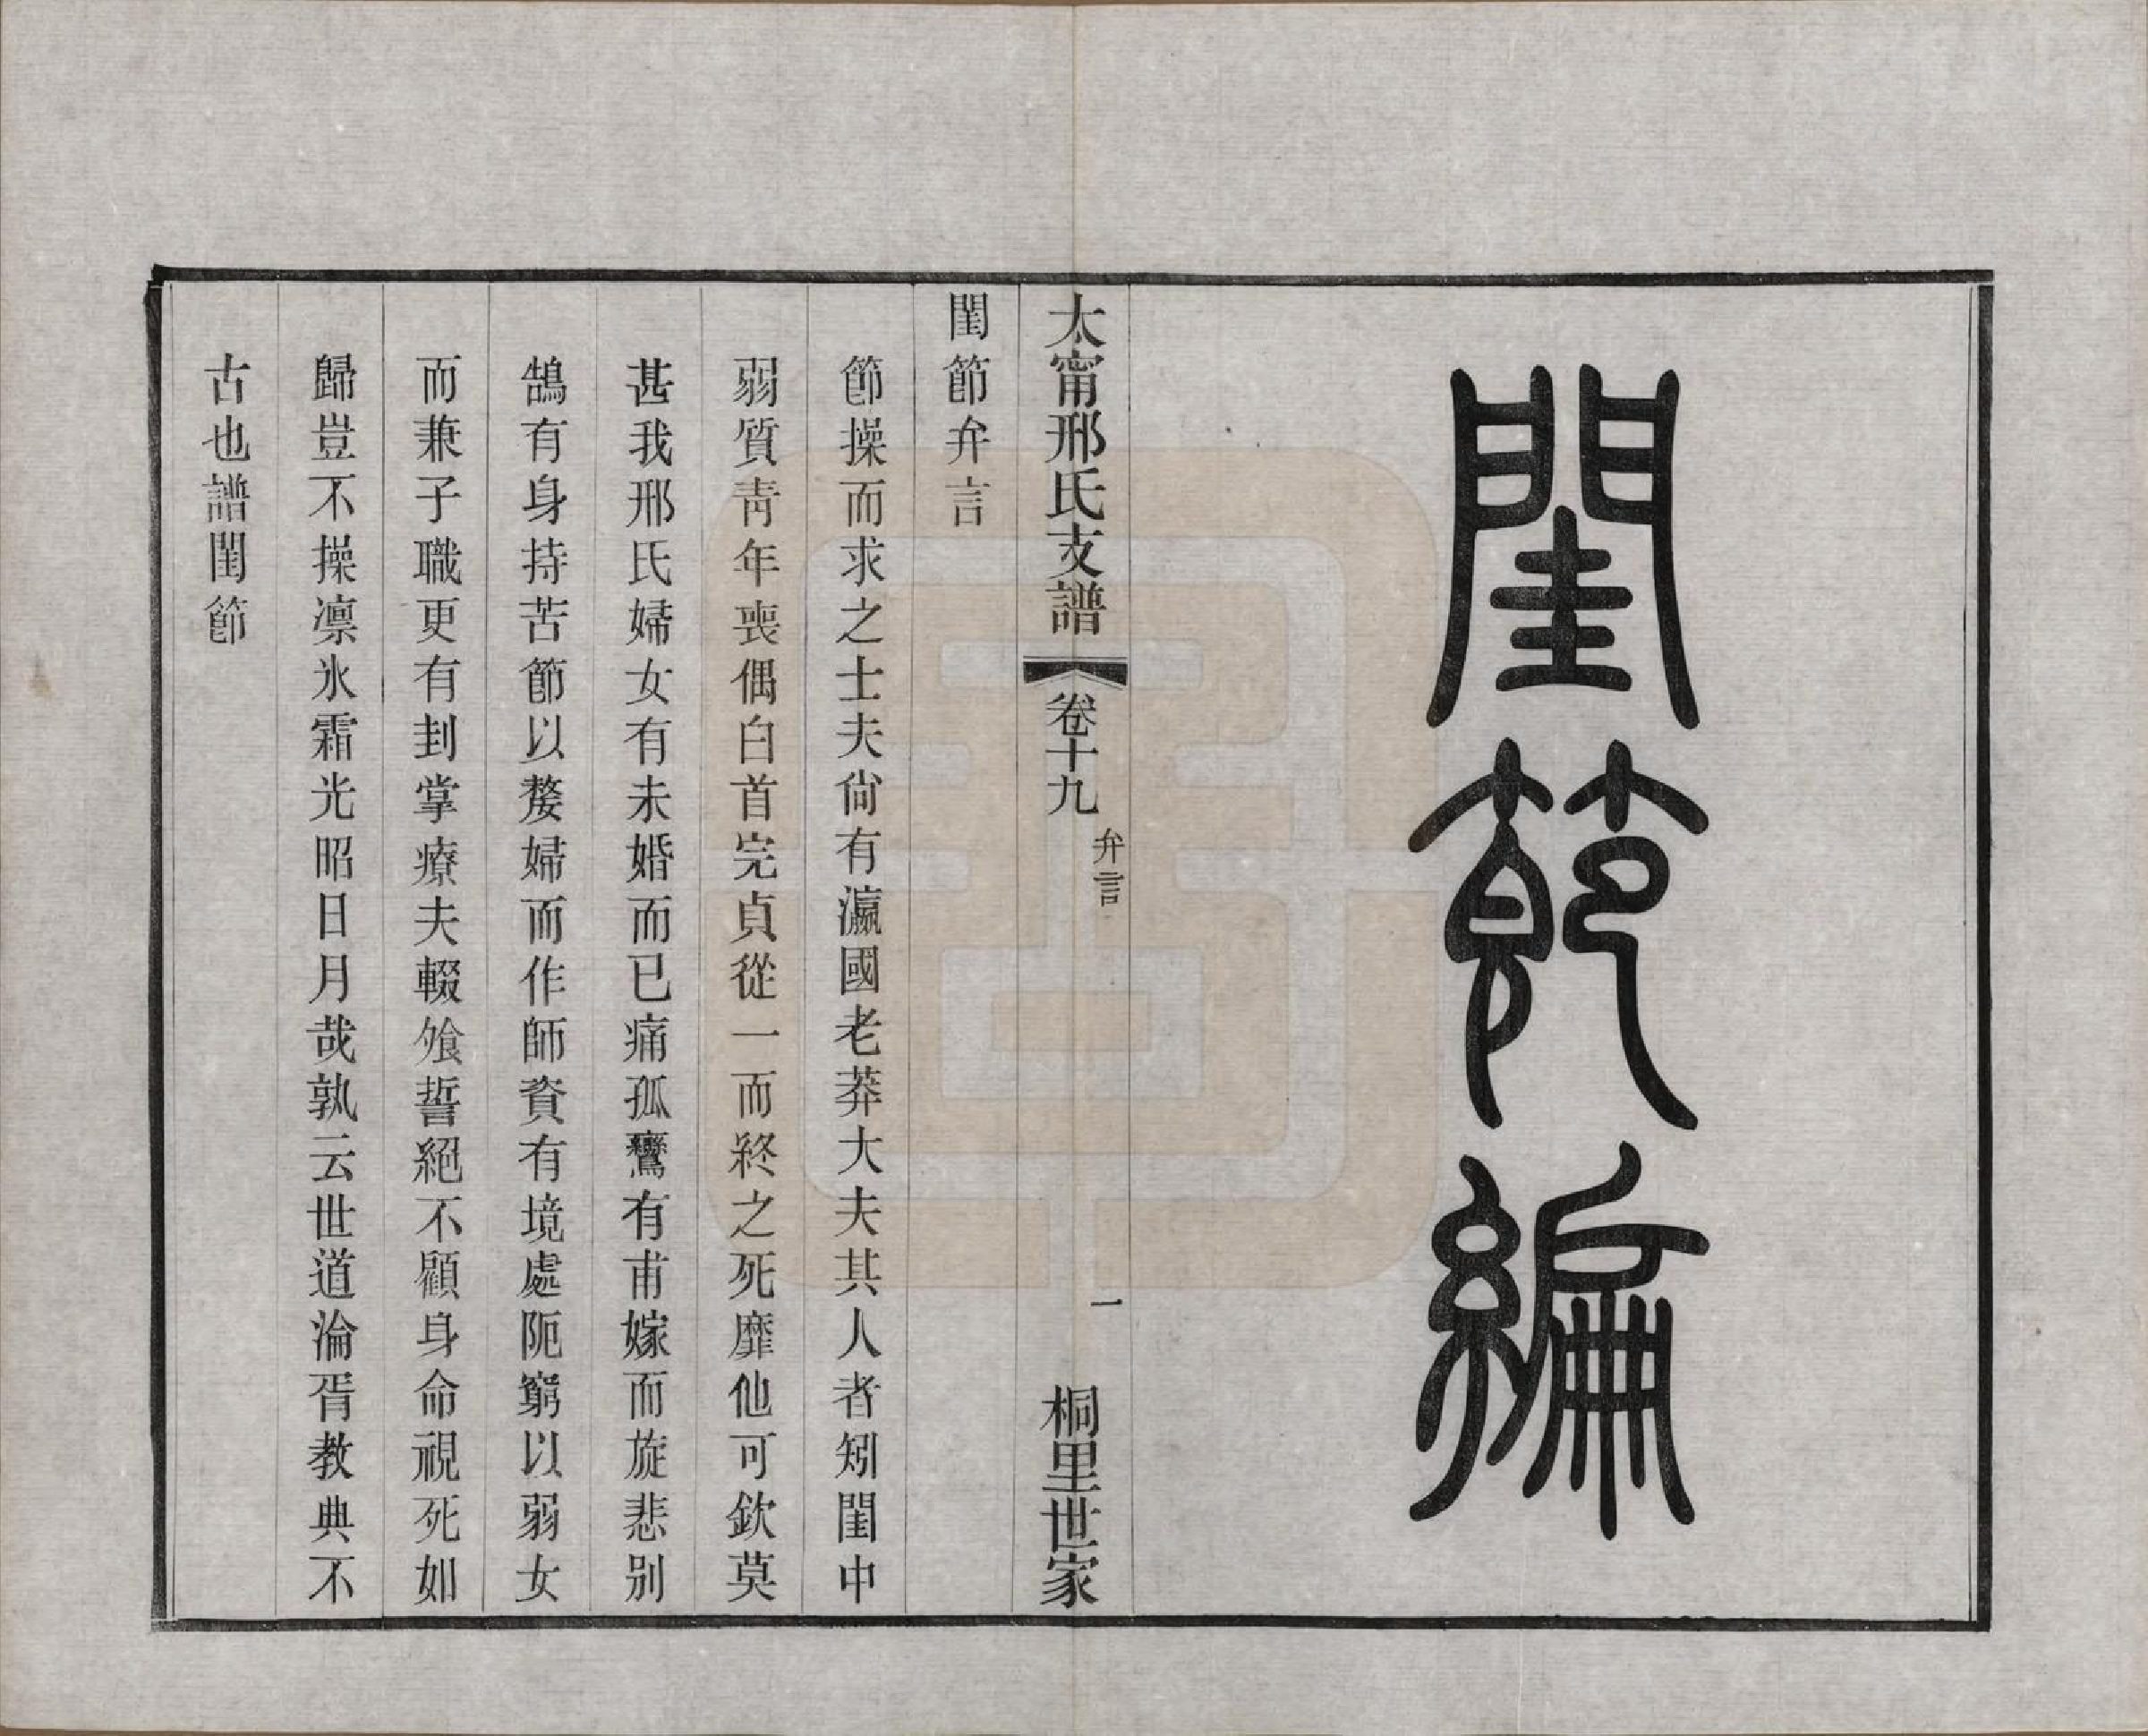 閨節編
太甯邢氏支譜
卷十九
弁言
一
桐里世家
閨節弁言
節操而求之士夫尙有瀛國老莽大夫其人者矧閨中
弱質靑年喪偶白首完貞從一而終之死靡他可欽莫
甚我邢氏婦女有未婚而已痛孤鸞有甫嫁而旋悲別
鵠有身持苦節以嫠婦而作師資有境處阨窮以弱女
而兼子職更有刲掌療夫輟飧誓絕不顧身命視死如
歸豈不操凛氷霜光昭日月哉孰云世道淪胥教典不
古也譜閨節